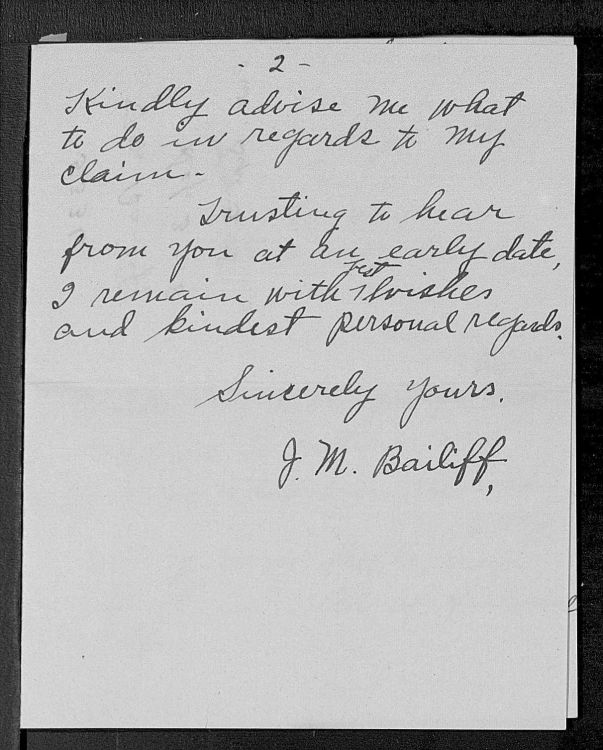 - 2 -
Kindly advise me what
to do in regards to my
claim -
Trusting to hear
from you at an early date,
I remain with best wishes
and kindest personal regards.
Sincerely yours.
J. M. Bailiff,